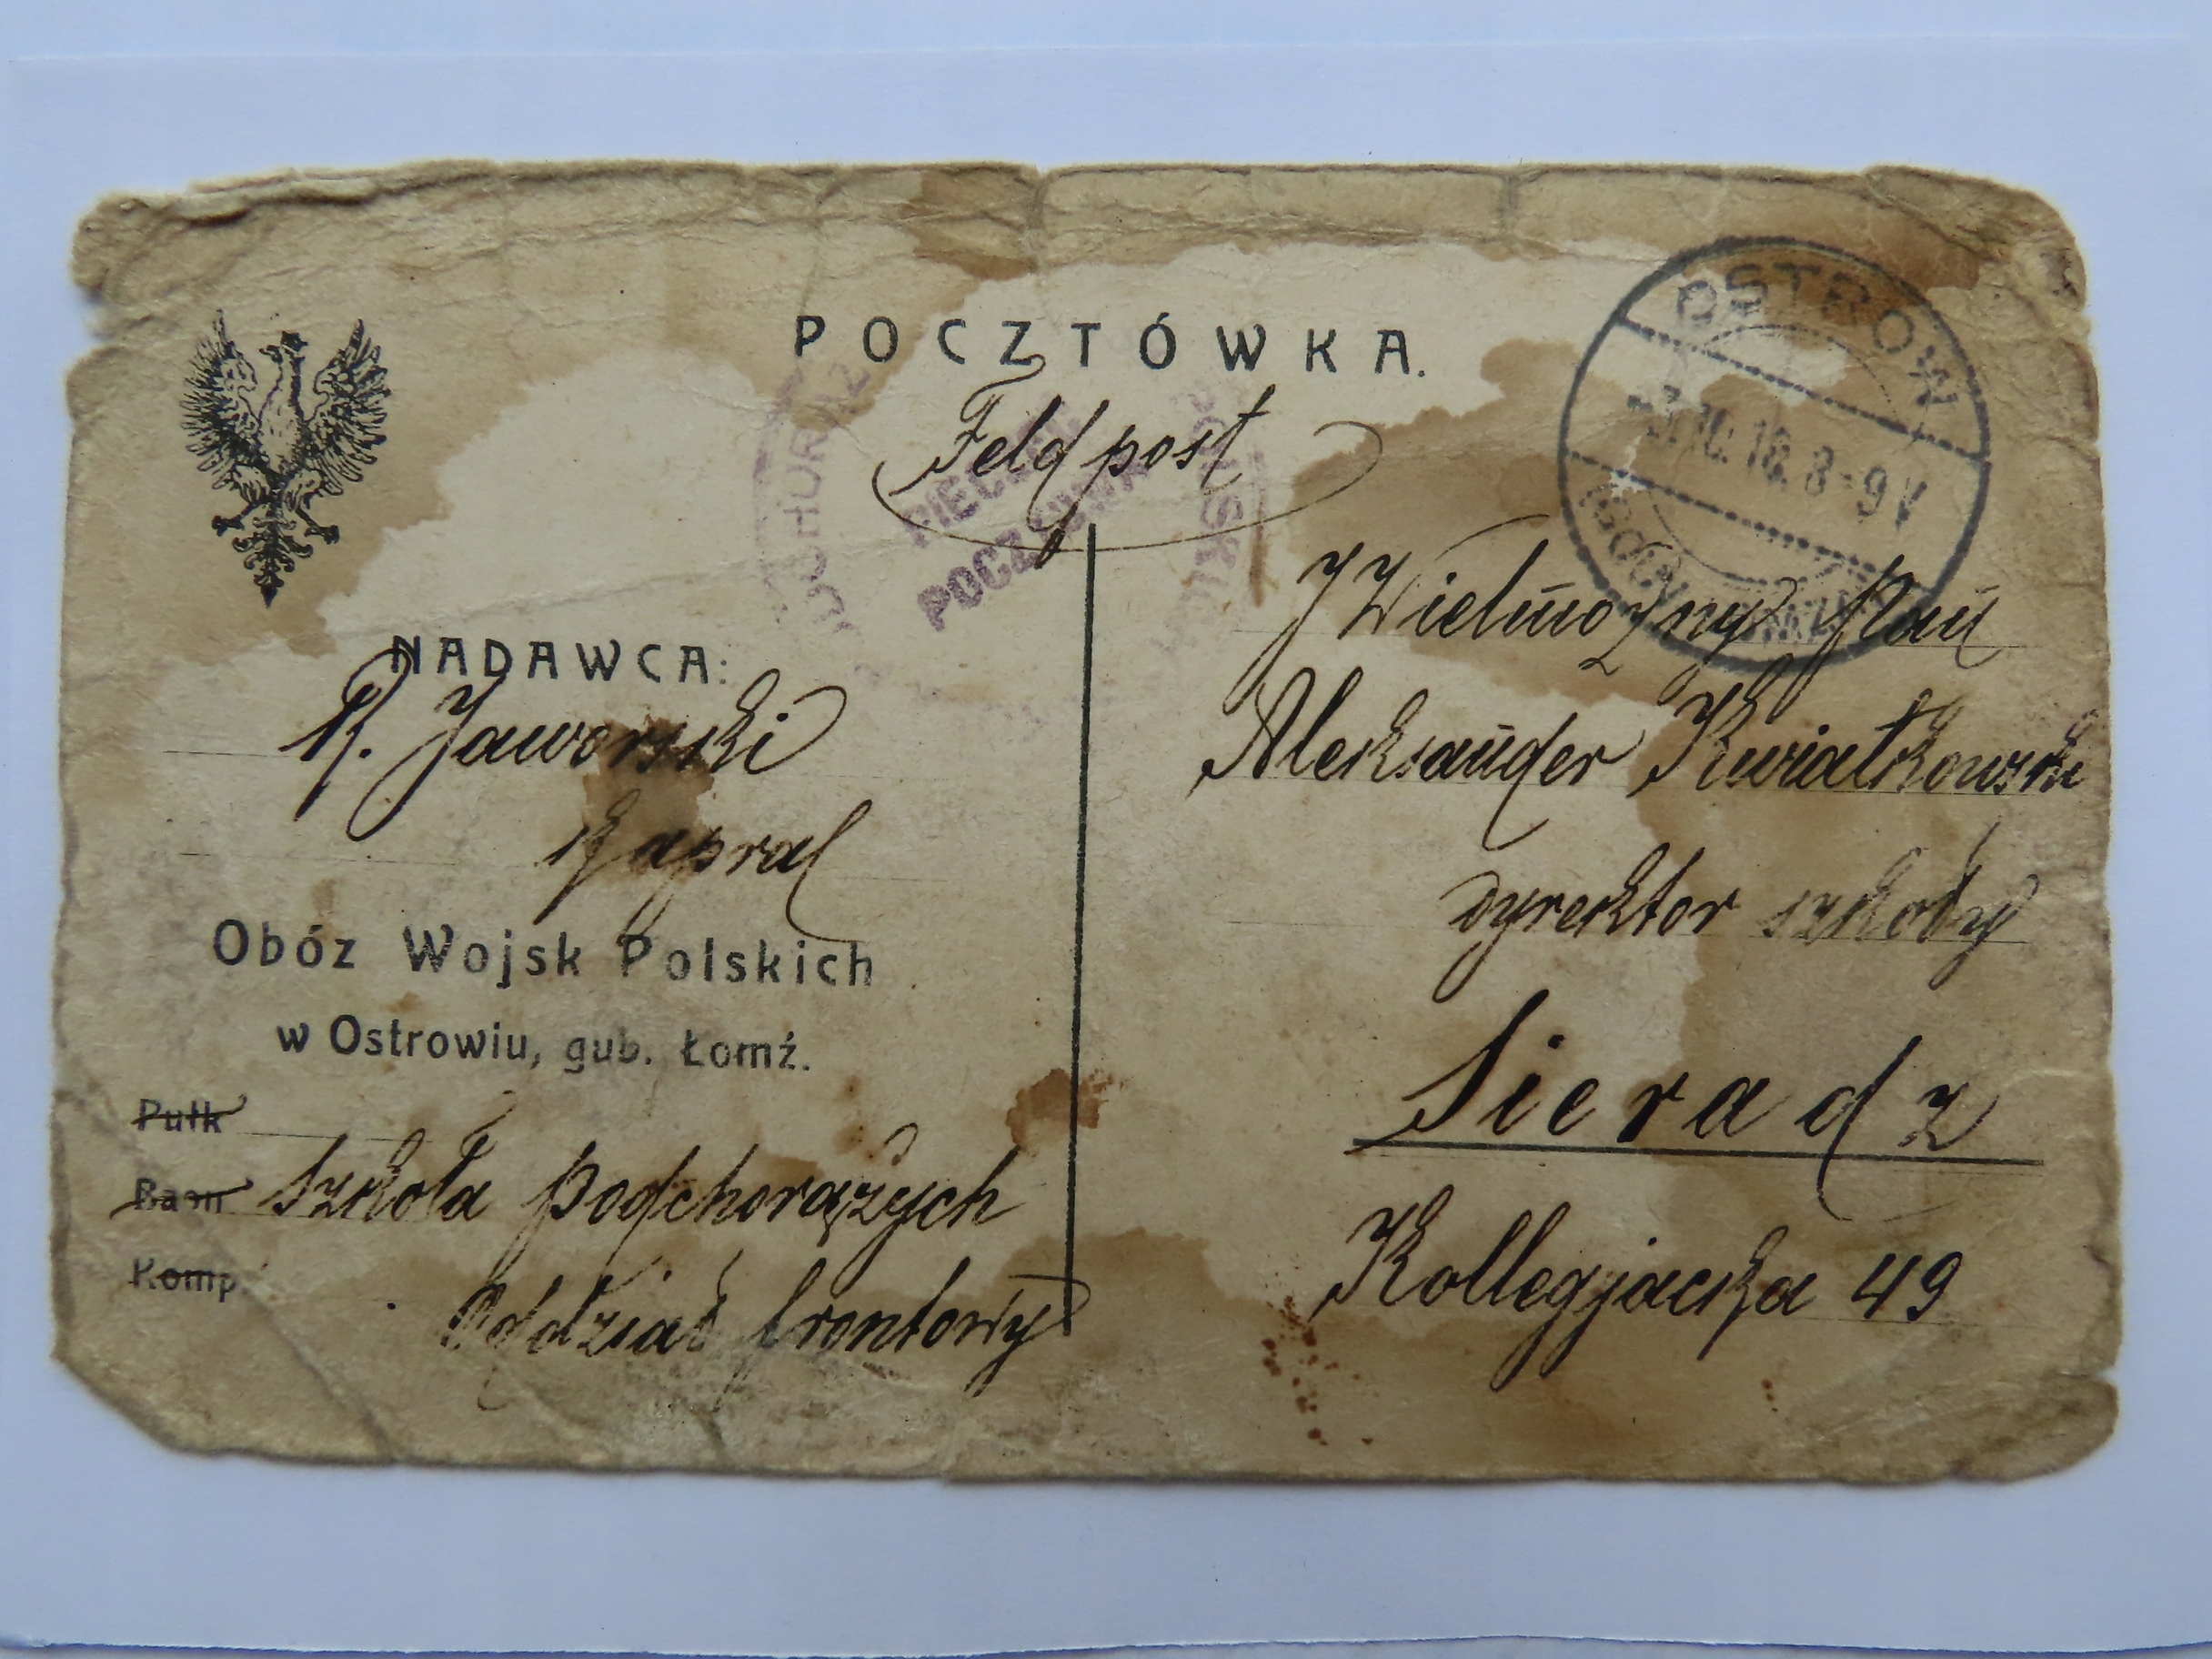 POCZTÓWKA.
Feldpost
PIECZĘĆ
POCZTOWA
OSTROW
10. 16. 8-9 V
NADAWCA:
R. Jaworski
kapral
Obóz Wojsk Polskich
w Ostrowiu, gub. Łomż.
Pułk
Baon szkoła podchorążych
Komp.
Oddział frontowy
JWielmożny Pan
Aleksander Kwiatkowski
dyrektor szkoły
Sieradz
Kollegjacka 49